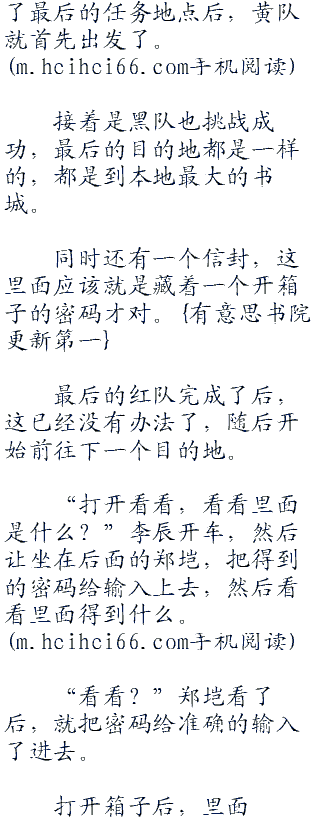 了最后的任务地点后，黄队
就首先出发了。
(m.hcihci66.com手机阅读)
接着是黑队也挑战成
功，最后的目的地都是一样
的，都是到本地最大的书
城。
同时还有一个信封，这
里面应该就是藏着一个开箱
子的密码才对。{有意思书院
更新第一}
最后的红队完成了后，
这已经没有办法了，随后开
始前往下一个目的地。
“打开看看，看看里面
是什么？”李辰开车，然后
让坐在后面的郑垲，把得到
的密码给输入上去，然后看
看里面得到什么。
(m.hcihci66.com手机阅读)
“看看？”郑垲看了
后，就把密码给准确的输入
了进去。
打开箱子后，里面